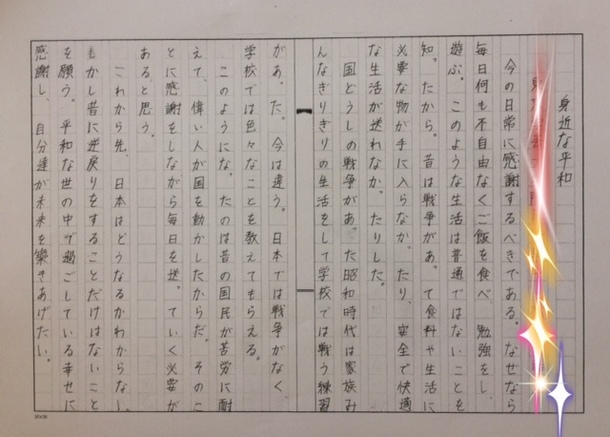 身近な平和
今の日常に感謝するべきである。なぜなら
毎日何も不自由なくご飯を食べ、勉強をし、
遊ぶ。このような生活は普通ではないことを
知ったから。昔は戦争があって食料や生活に
必要な物が手に入らなかったり、安全で快適
な生活が送れなかったりした。
国どうしの戦争があった昭和時代は家族み
んなぎりぎりの生活をして学校では戦う練習
があった。今は違う。日本では戦争がなく、
学校では色々なことを教えてもらえる。
このようになったのは昔の国民が苦労に耐
えて、偉い人が国を動かしたからだ。そのこ
とに感謝をしながら毎日を送っていく必要が
あると思う。
これから先、日本はどうなるかわからない。
しかし昔に逆戻りをすることだけはないこと
を願う。平和な世の中で過ごしている幸せに
感謝し、自分達が未来を築きあげたい。